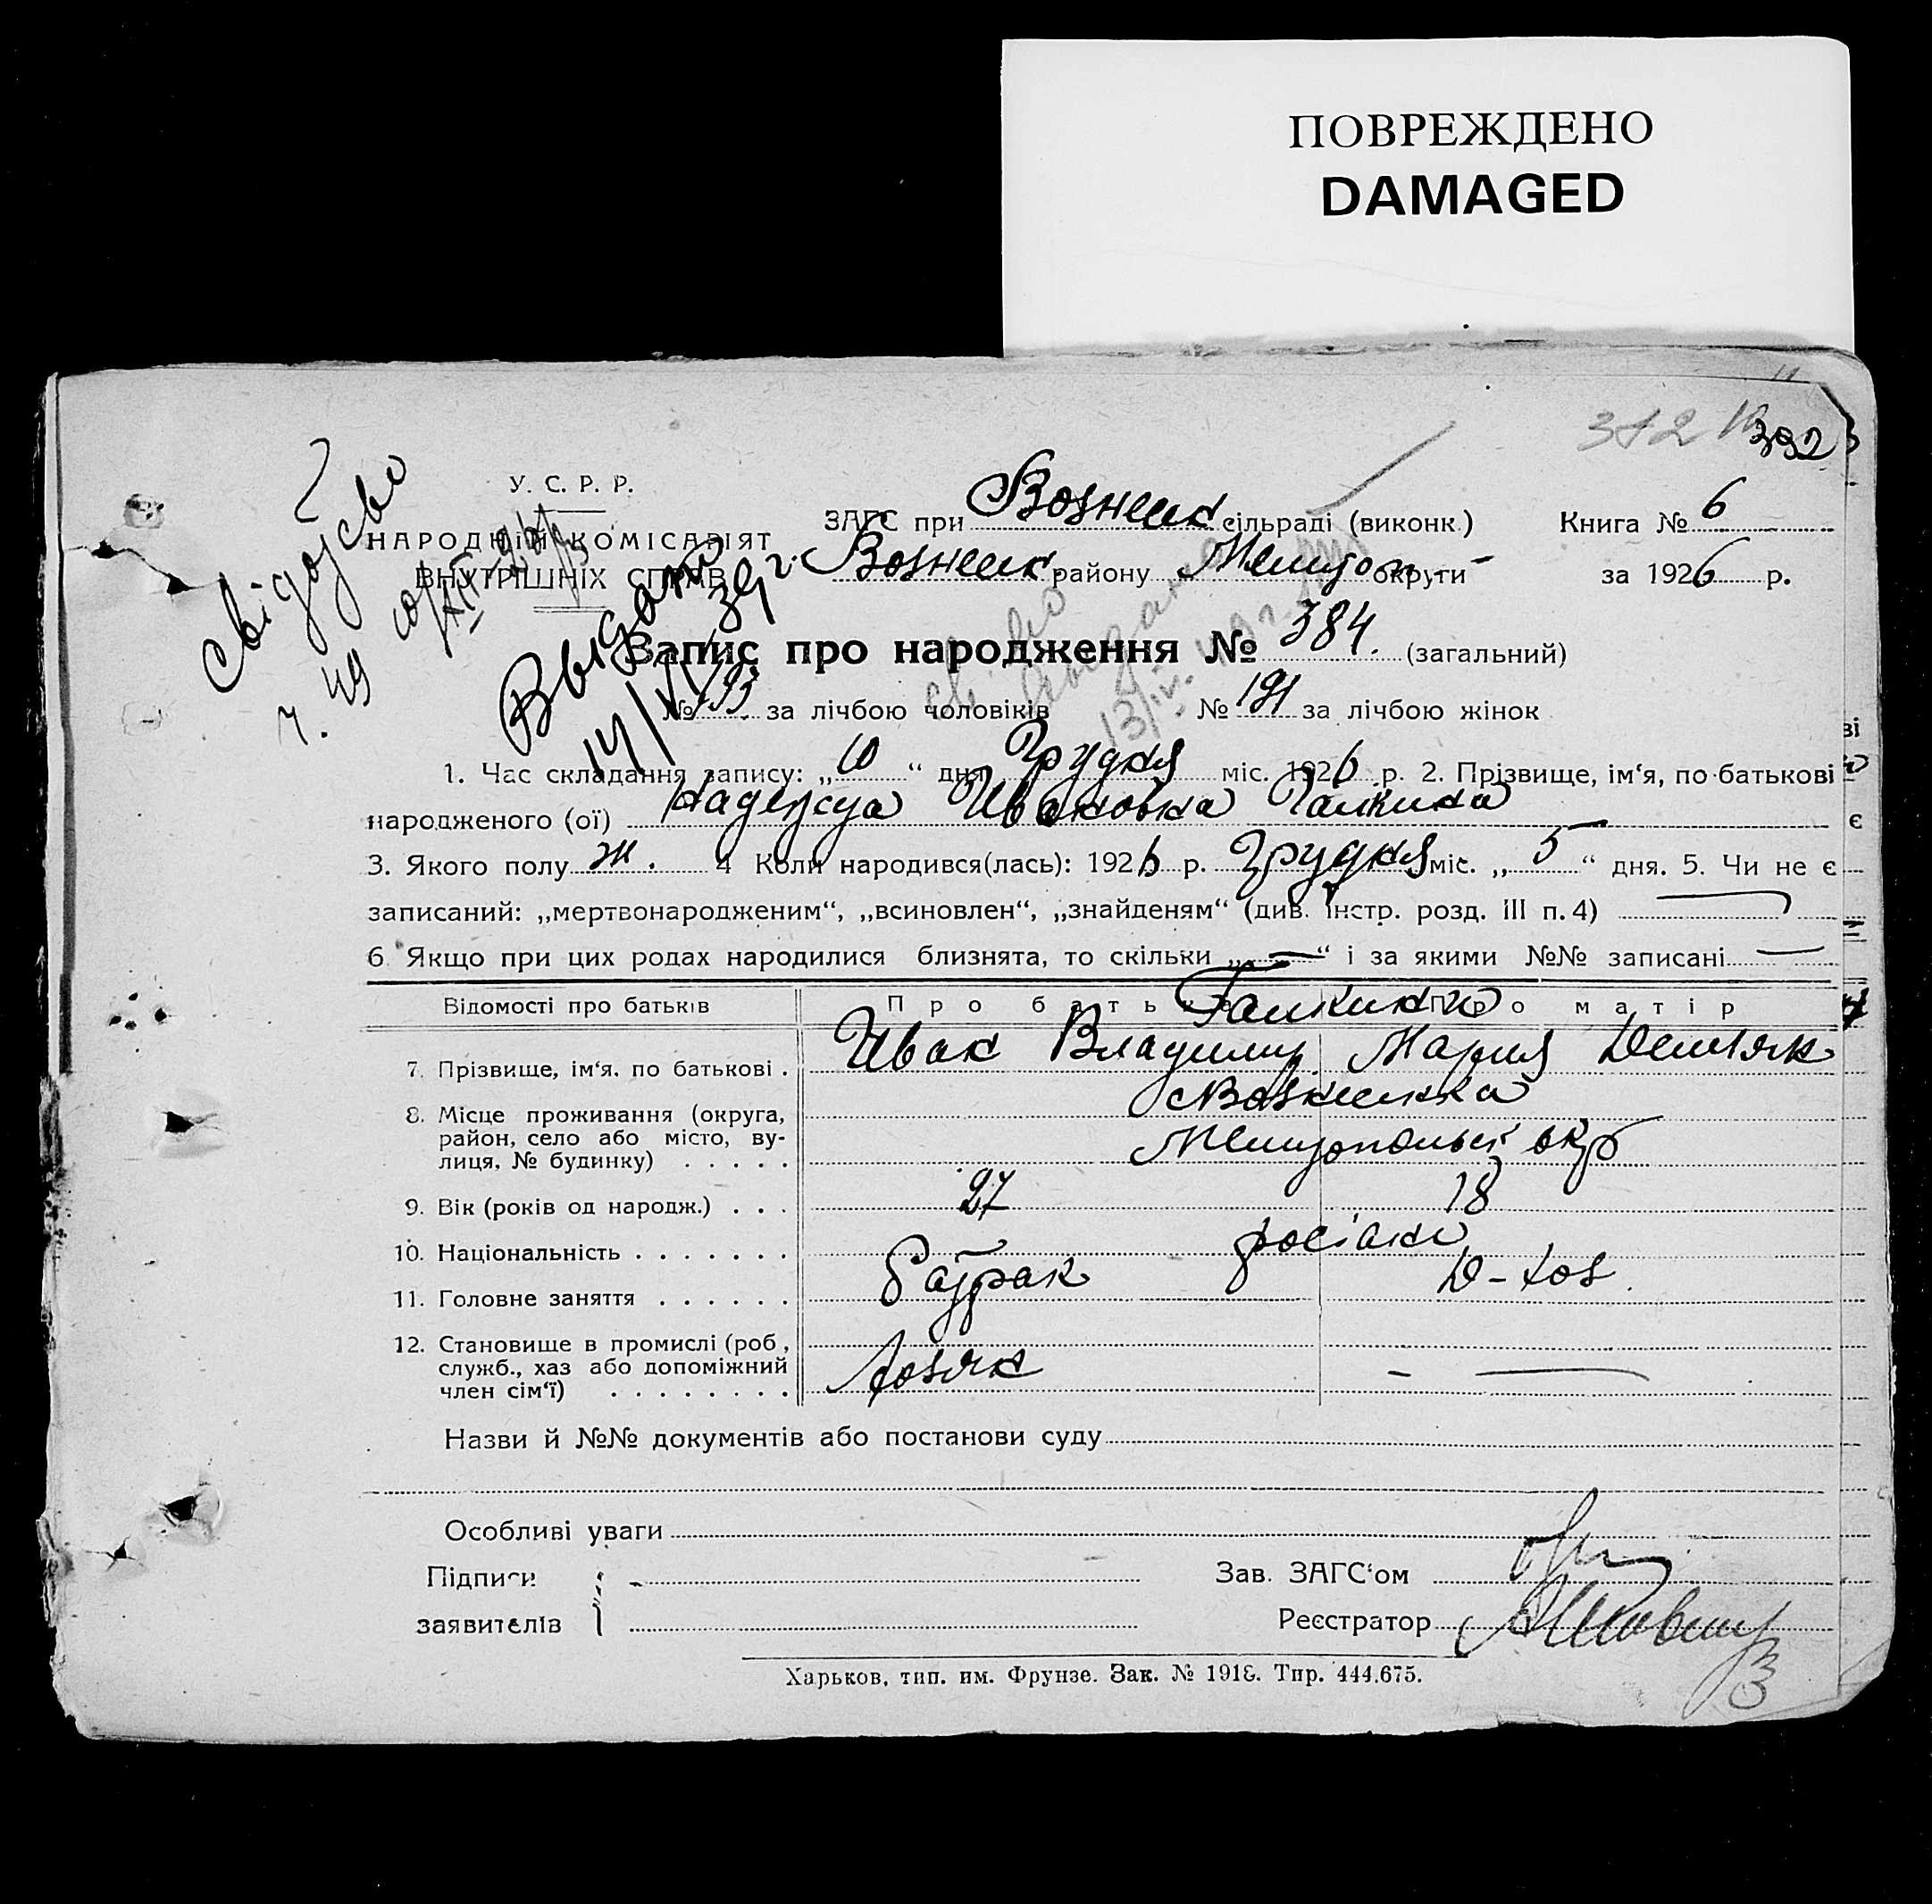 ПОВРЕЖДЕНО
DAMAGED
392
У. С. Р. Р.
НАРОДНІЙ КОМІСАРІЯТ
ВНУТРІШНІХ СПРАВ
Свідоцтво
Выдано
14/VI 39 г.
ЗАГС при Вознесек сільраді (виконк.) Книга № 6
Вознесек району Мелітоп округи за 1926 р.
Запис про народження № 384. (загальний)
№ 193 за лічбою чоловіків № 191 за лічбою жінок
1. Час складання запису: „10“ дня Грудня міс. 1926 р. 2. Прізвище, ім‘я, по батькові
народженого (ої) Надежда Ивановна Галкина
3. Якого полу ж. 4 Коли народився(лась): 1926 р. Грудня міс. „5“ дня. 5. Чи не є
записаний: „мертвонародженим“, „всиновлен“, „знайденям“ (див. інстр. розд. III п. 4) —
6. Якщо при цих родах народилися близнята, то скільки „—“ і за якими №№ записані —
Відомості про батьків Про батька Про матір
Галкини
7. Прізвище, ім‘я, по батькові . Иван Владимир Мария Демьян
8. Місце проживання (округа, район, село або місто, вулиця, № будинку) . . . . . Вознесенка
Мелитопольск окр
9. Вік (років од народж.) . . . 27 18
10. Національність . . . . . . . росіяни
11. Головне заняття . . . . . . Д-хоз.
12. Становище в промислі (роб,
служб., хаз або допоміжний
член сім‘ї) . . . . . . . . Хозяин — —
Назви й №№ документів або постанови суду
Особливі уваги
Підписи
заявителів
Зав. ЗАГС‘ом
Реєстратор
3
Харьков, тип. им. Фрунзе. Зак. № 1918. Тир. 444.675.